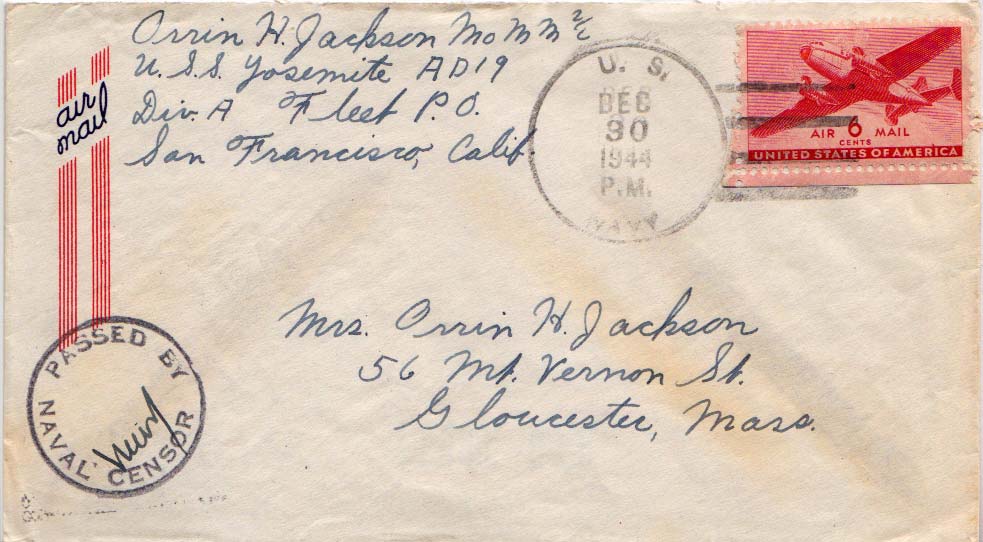 Orrin H. Jackson MoMM 2/c
U.S.S. Yosemite AD19
Div. A Fleet P.O.
San Francisco, Calif
air
mail
U. S.
DEC
30
1944
P.M.
NAVY
AIR 6 MAIL
CENTS
UNITED STATES OF AMERICA
Mrs. Orrin H. Jackson
56 Mt. Vernon St.
Gloucester, Mass.
PASSED BY
NAVAL CENSOR